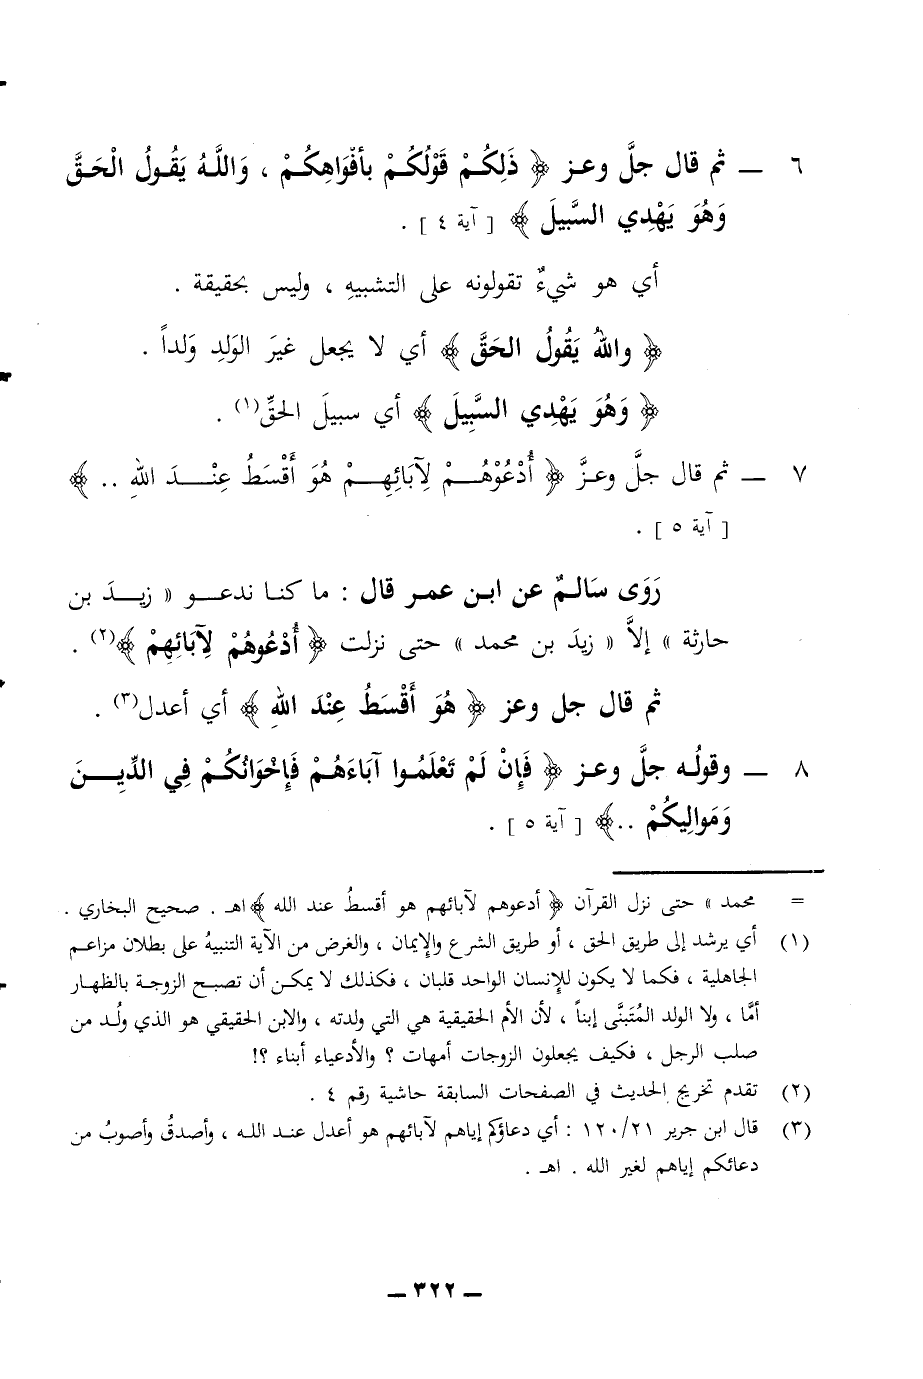 ٦ ــ ثم قال جلَّ وعـز ﴿ ذَلِكُـمْ قَوْلُكُـمْ بأَفْوَاهِكُـمْ ، وَاللَّـهُ يَقُـولُ الْحَـقَّ
وَهُوَ يَهْدِي السَّبِيلَ ﴾ [ آية ٤ ] .
أي هو شيءٌ تقولونه على التشبيهِ ، وليس بحقيقة .
﴿ واللهُ يَقُولُ الحَقَّ ﴾ أي لا يجعل غيرَ الوَلدِ وَلداً .
﴿ وَهُوَ يَهْدِي السَّبِيلَ ﴾ أي سبيلَ الحَقِّ(١) .
٧ ــ ثم قال جلَّ وعـزَّ ﴿ أُدْعُوْهُـــمْ لِآبَائِهِـــمْ هُوَ أَقْسَطُ عِنْـــدَ اللهِ .. ﴾
[ آية ٥ ] .
رَوَى سَالـمٌ عن ابـن عمـر قال : ما كنـا ندعـــو « زيـــدَ بن
حارثة » إلاَّ « زيدَ بن محمد » حتى نزلت ﴿ أُدْعُوهُمْ لِآبَائِهِمْ ﴾(٢) .
ثم قال جل وعز ﴿ هُوَ أَقْسَطُ عِنْدَ اللهِ ﴾ أي أعدل(٣) .
٨ ــ وقولُـه جلَّ وعـز ﴿ فَإِنْ لَمْ تَعْلَمُـوا آبَاءَهُـمْ فَإِخْوَانُكُـمْ فِي الدِّيـــنَ
وَمَوالِيكُمْ .. ﴾ [ آية ٥ ] .
= محمد » حتى نزل القرآن ﴿ أدعوهم لآبائهم هو أقسطُ عند الله ﴾ اهـ . صحيح البخاري .
(١) أي يرشد إلى طريق الحق ، أو طريق الشرع والإيمان ، والغرض من الآية التنبيهُ على بطلان مزاعم
الجاهلية ، فكما لا يكون للإنسان الواحد قلبان ، فكذلك لا يمكـن أن تصبـح الزوجـة بالظهـار
أمَّا ، ولا الولد المُتَبنَّى إبناً ، لأن الأم الحقيقية هي التي ولدته ، والابن الحقيقي هو الذي ولُـد من
صلب الرجل ، فكيف يجعلون الزوجات أمهات ؟ والأدعياء أبناء ؟!
(٢) تقدم تخريج الحديث في الصفحات السابقة حاشية رقم ٤ .
(٣) قال ابن جرير ١٢٠/٢١ : أي دعاؤكم إياهم لآبائهم هو أعدل عنـد اللـه ، وأصدقُ وأصوبُ من
دعائكم إياهم لغير الله . اهـ .
ــ ٣٢٢ ــ